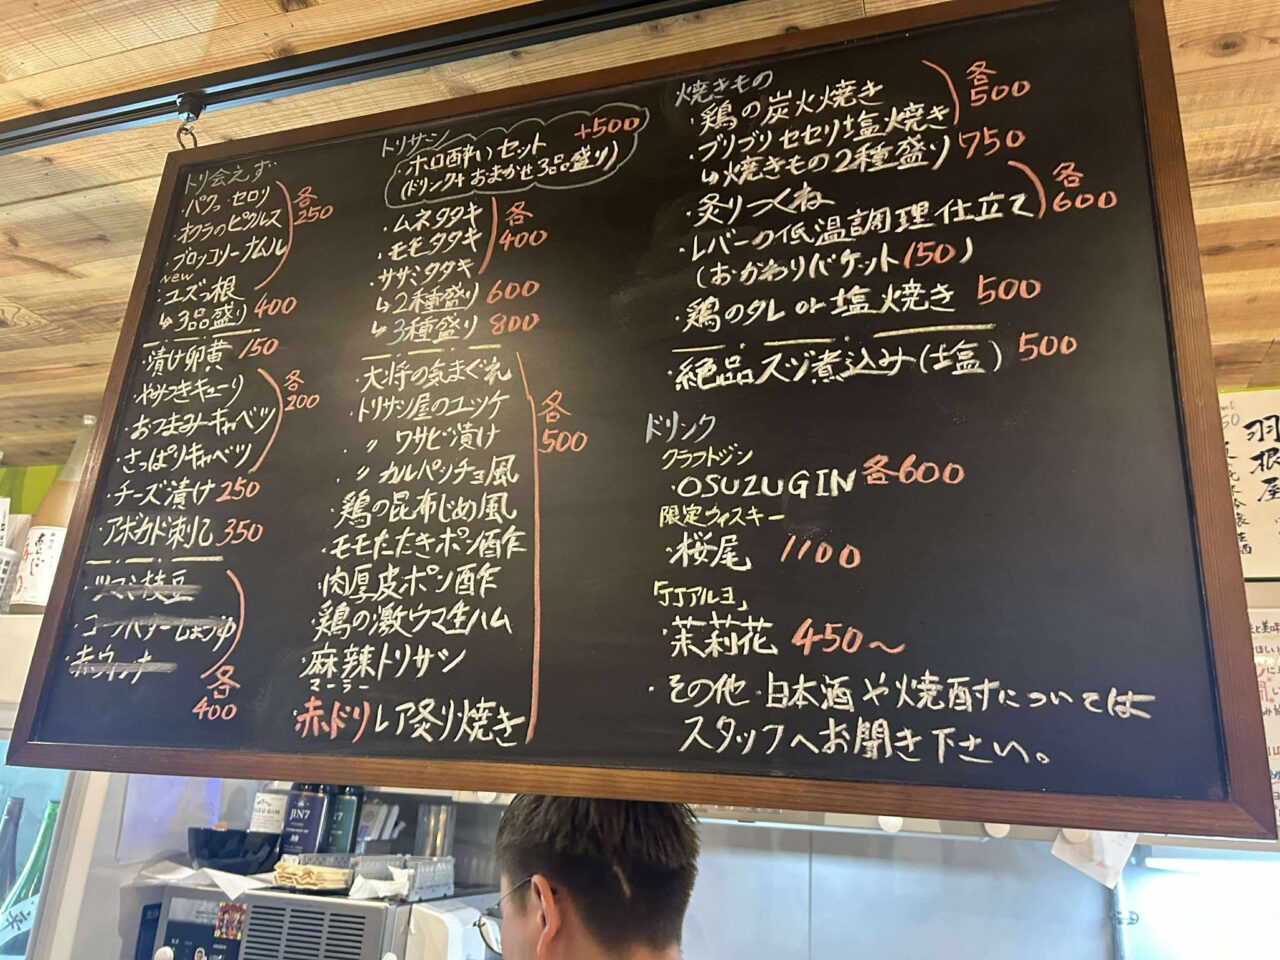 トリ会えず
・パクチーセロリ
・オクラのピクルス
・ブロッコリーナムル
各
250
NEW
・ユズっ根
↳3品盛り 400
・漬け卵黄 150
・やみつきキューリ
・おつまみキャベツ
・さっぱりキャベツ
各
200
・チーズ漬け 250
・アボカド刺し 350
・ツマミ枝豆
・コーンバターしょうゆ
・赤ウィンナー
各
400
トリサシ
・ホロ酔いセット +500
(ドリンク+おまかせ3品盛り)
・ムネタタキ
・モモタタキ
・ササミタタキ
各
400
↳2種盛り 600
↳3種盛り 800
・大将の気まぐれ
・トリサシ屋のユッケ
・〃 ワサビ漬け
・〃 カルパッチョ風
・鶏の昆布じめ風
・モモたたきポン酢
・肉厚皮ポン酢
・鶏の激ウマ生ハム
・麻辣トリサシ
マーラー
・赤ドリレア炙り焼き
各
500
焼きもの
・鶏の炭火焼き
・プリプリセセリ塩焼き
各
500
↳焼きもの2種盛り 750
・炙りつくね
・レバーの低温調理仕立て
各
600
(おかわりバケット150)
・鶏のタレor塩焼き 500
・絶品スジ煮込み(塩) 500
ドリンク
クラフトジン
・OSUZUGIN 各600
限定ウィスキー
・桜尾 1100
「JJアルヨ」
・茉莉花 450〜
・その他、日本酒や焼酎については
スタッフへお聞き下さい。
羽根屋
OSUZU GIN
JIN7